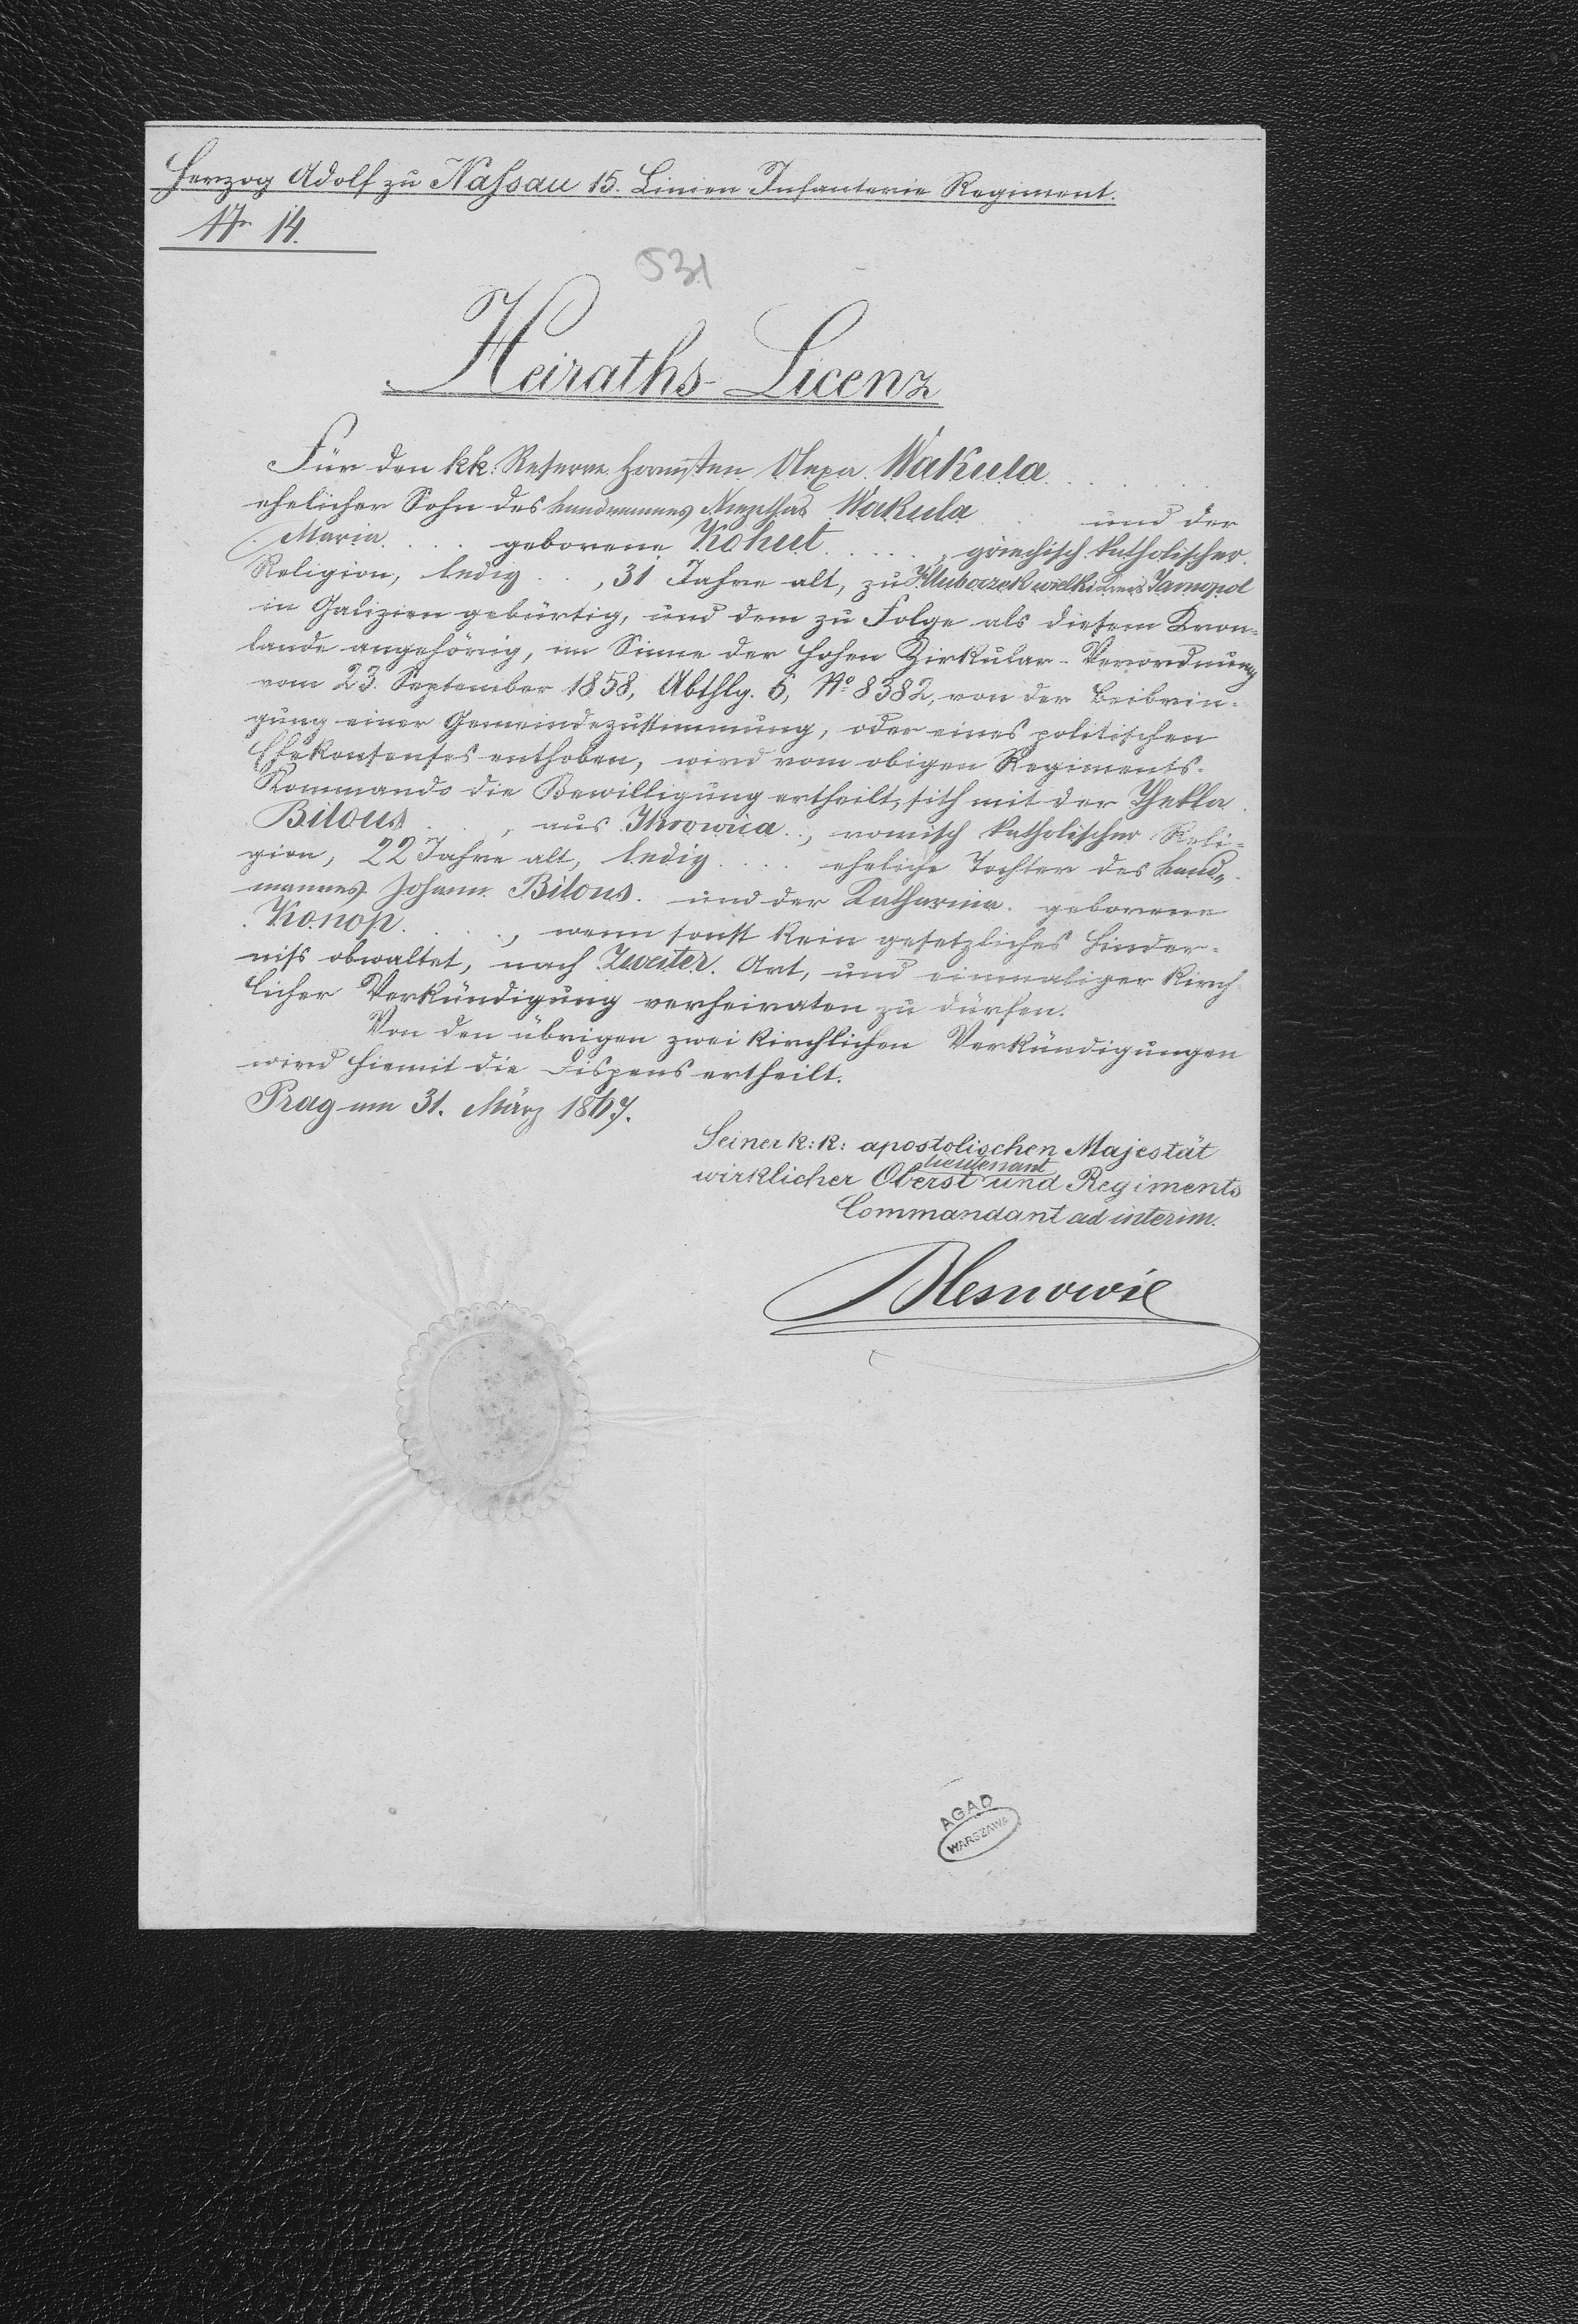 Herzog Adolf zu Nassau 15. Linien Infanterie Regiment.
Nr 14.
531
Heiraths-Licenz
Für den kk: Reserve Olexa Wakula
ehelicher Sohn des Landmannes Wakula und der
Maria geborene Kohut, griechisch katholischer
Religion, ledig, 31 Jahre alt, zu Hluboczek wielki Kreis Tarnopol
in Galizien gebürtig, und dem zu Folge als diesem Kron-
lande angehörig, im Sinne der hohen Zirkular-Verordnung
vom 23. September 1858, Abthlg. 6, No 8382, von der Beibrin-
gung einer Gemeindezustimmung, oder eines politischen
Ehekonsenses enthoben, wird vom obigen Regiments-
Kommando die Bewilligung ertheilt, sich mit der Thekla
Bilous, aus Ihrowica, romisch katholischer Reli-
gion, 22 Jahre alt, ledig eheliche Tochter des Land-
mannes Johann Bilous und der Katharina geborene
Konop, wenn sonst kein gesetzliches Hinder-
niss obwaltet, nach Zweiter Art, und einmaliger kirch
licher Verkündigung verheiraten zu dürfen.
Von den übrigen zwei kirchlichen Verkündigungen
wird hiemit die Dispens ertheilt.
Prag am 31. März 1867.
Seiner k: k: apostolischen Majestät
wirklicher Oberstlieutenant und Regiments
Commandant ad interim.
AGAD
WARSZAWA